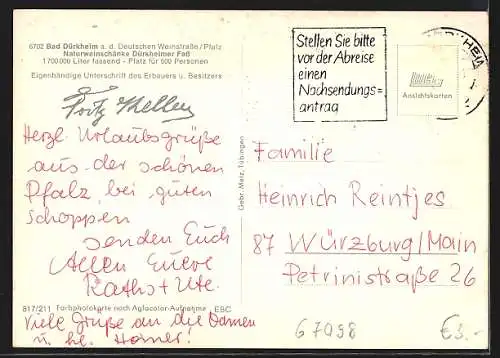 6702 Bad Dürkheim a. d. Deutschen Weinstraße/Pfalz
Naturweinschänke Dürkheimer Faß
1700000 Liter fassend - Platz für 500 Personen
Eigenhändige Unterschrift des Erbauers u. Besitzers
Fritz Keller
Herzl. Urlaubsgrüße
aus der schönen
Pfalz, bei guten
Schoppen
senden Euch
Allen Euere
Raths + Ute.
817/211 Farbphotokarte nach Agfacolor-Aufnahme EBC
Viele Grüße an die Damen
u. he. Horner!
Gebr. Metz, Tübingen
Stellen Sie bitte
vor der Abreise
einen
Nachsendungs=
antrag
Ansichtskarten
Familie
Heinrich Reintjes
87 WÜRZBURG/Main
Petrinistraße 26
67098
€3.-